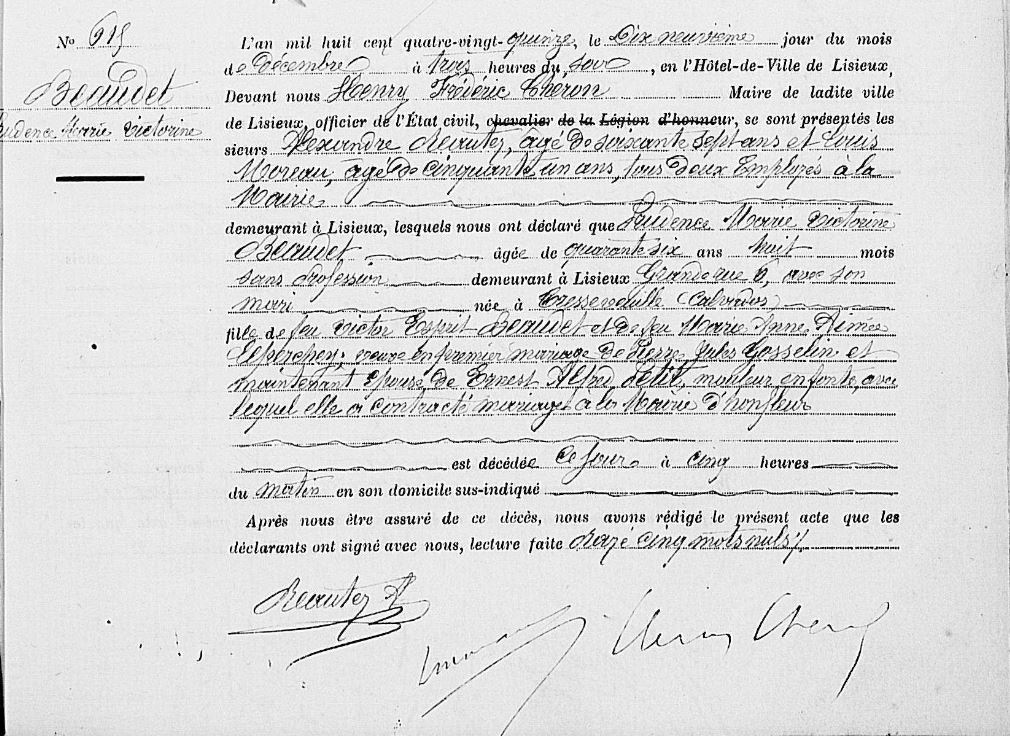 No 615
Beaudet
Prudence Marie Victorine
L'an mil huit cent quatre-vingt-quinze, le Dix neuvième jour du mois
de Décembre à trois heures du soir, en l'Hôtel-de-Ville de Lisieux,
Devant nous Henry Frédéric Chéron Maire de ladite ville
de Lisieux, officier de l'État civil, chevalier de la Légion d'honneur, se sont présentés les
sieurs Alexandre Reautey, agé de soixante sept ans et Louis
Moreau, agé de cinquante un ans, tous deux Employés à la
Mairie
demeurant à Lisieux, lesquels nous ont déclaré que Prudence Marie Victorine
Beaudet âgée de quarante six ans huit mois
sans profession demeurant à Lisieux Grande rue 6, avec son
mari née à Cresseveuille (Calvados)
fille de feu Victor Esprit Beaudet et de feu Marie Anne Aimée
Leperchey; veuve en premier mariage de Pierre Jules Gosselin et
maintenant épouse de Ernest Alfred Petit, mouleur en fonte, avec
lequel elle a contracté mariage à la Mairie d'honfleur
est décédée Ce jour à cinq heures
du matin en son domicile sus-indiqué
Après nous être assuré de ce décès, nous avons rédigé le présent acte que les
déclarants ont signé avec nous, lecture faite Rayé cinq mots nuls
Reautey A
Henry Chéron